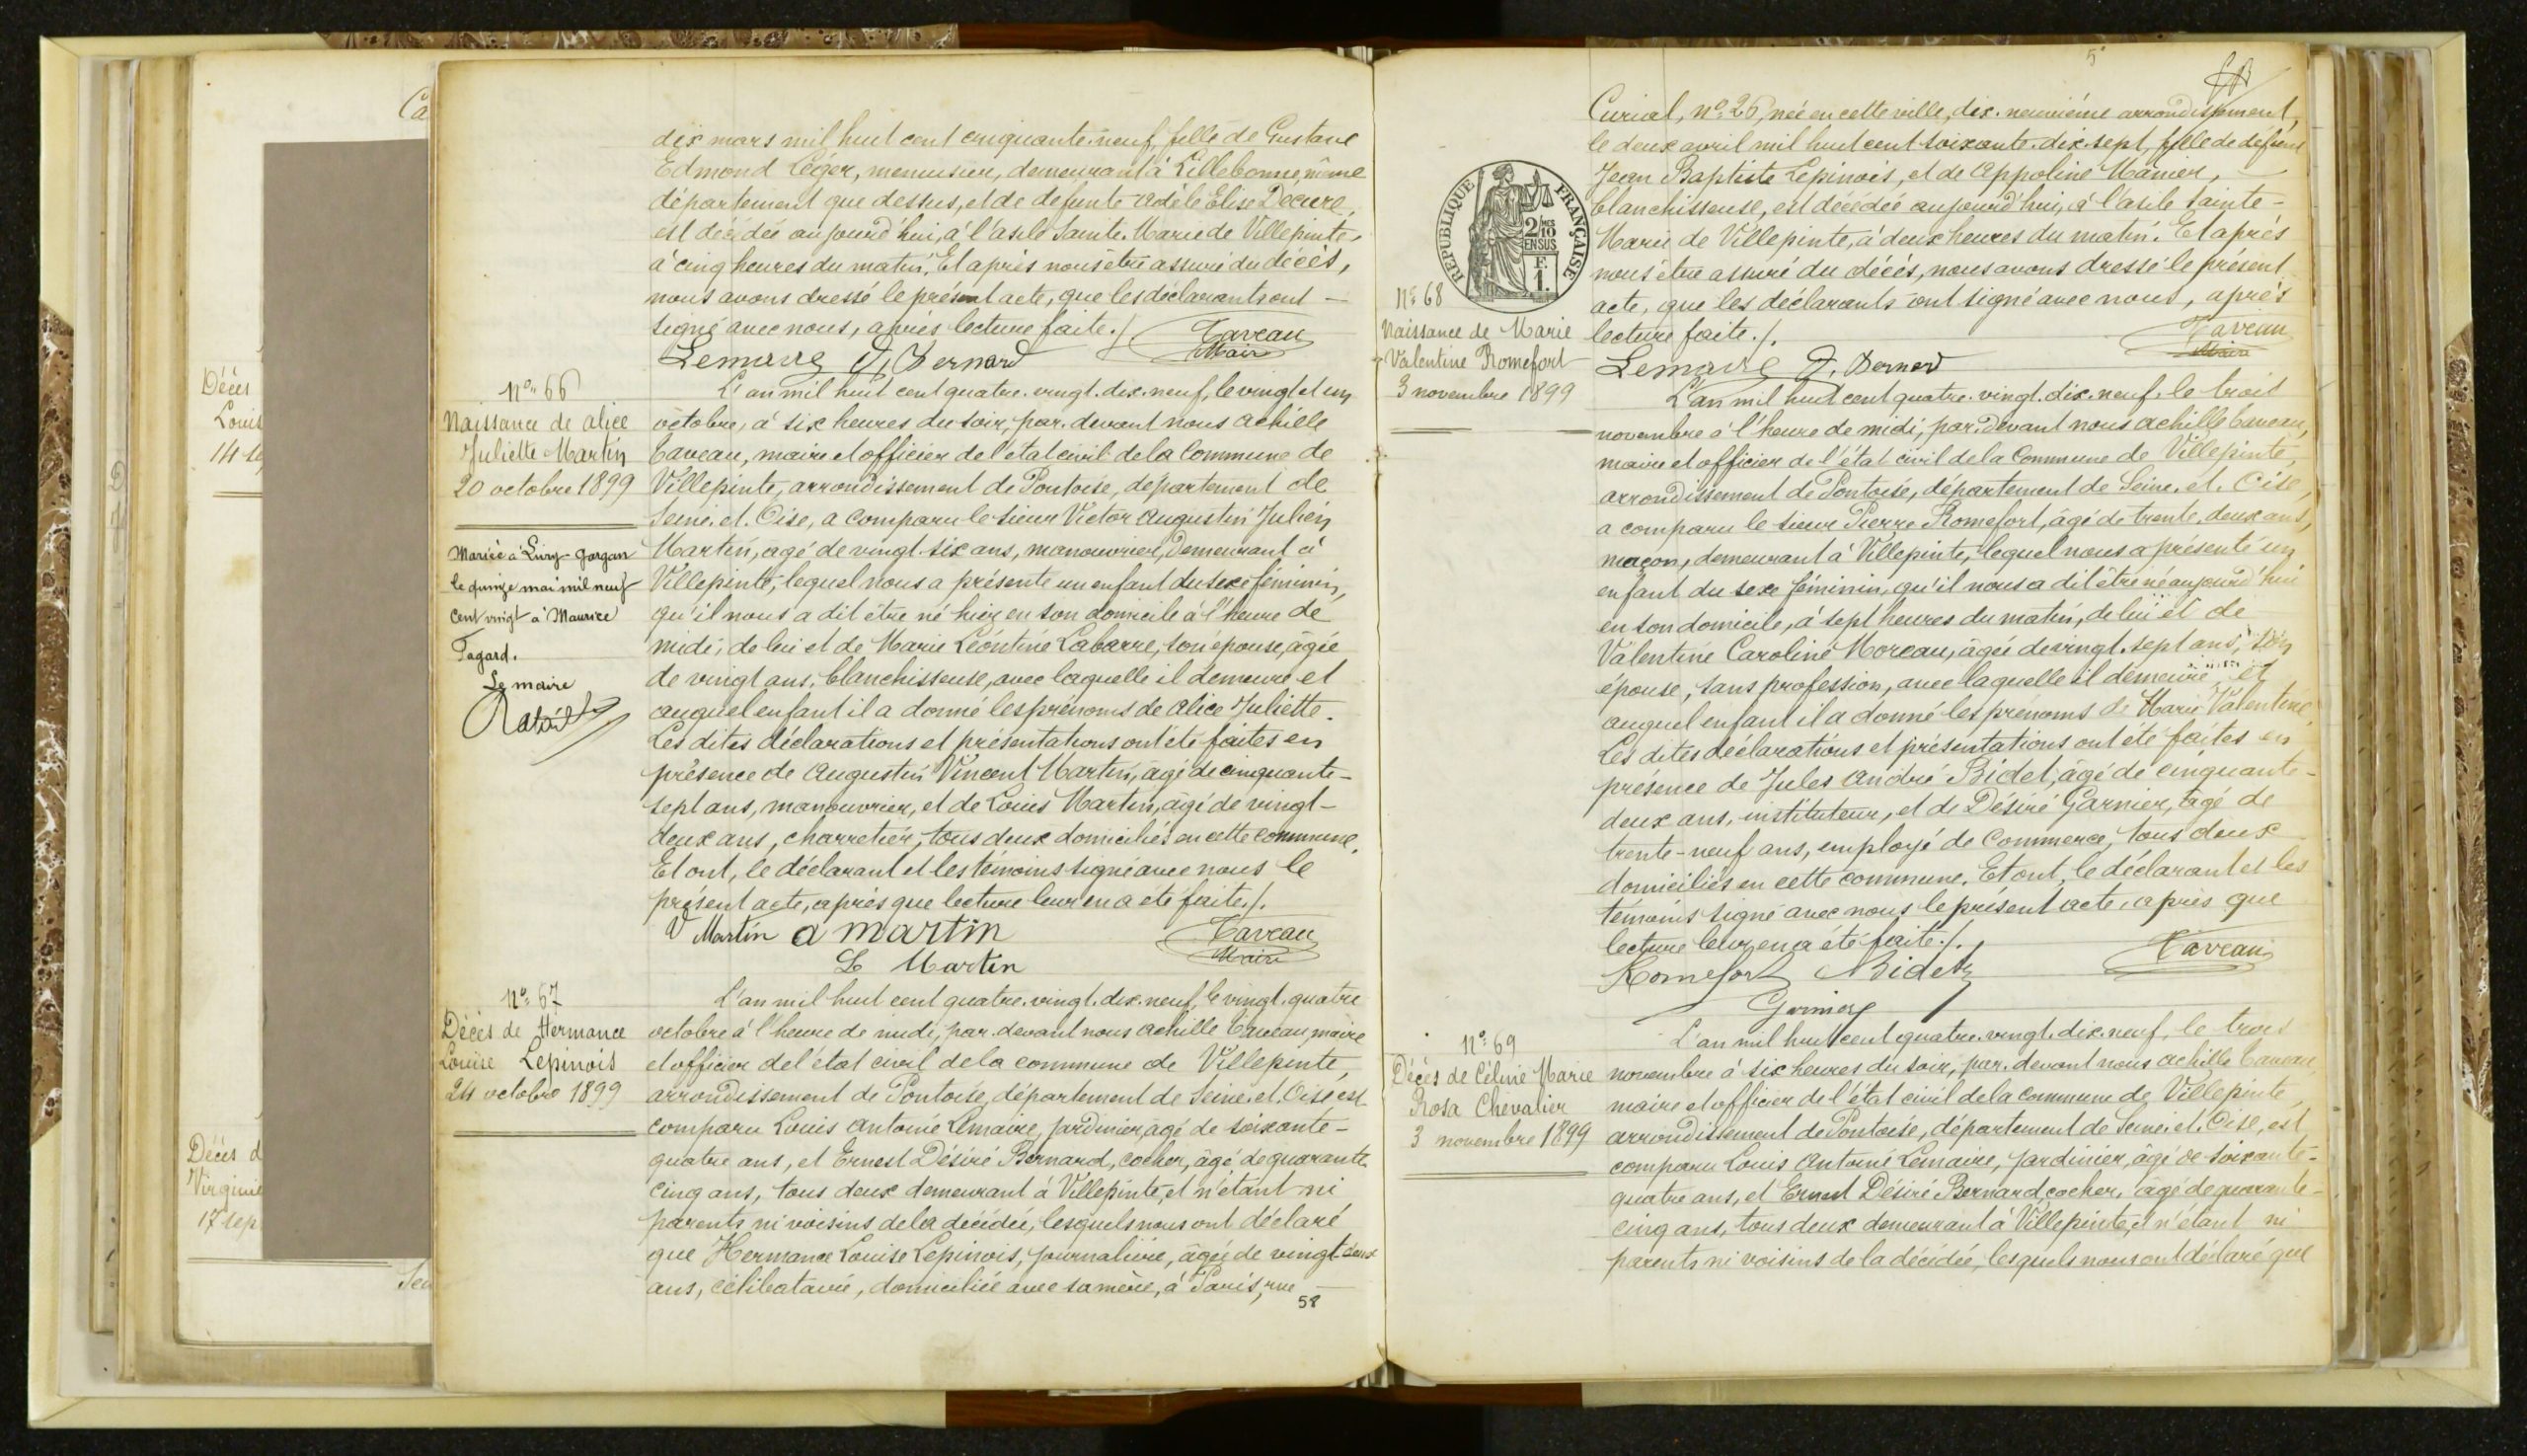 Ca
Décès
Louis
Décès d
Virginie
17 sep
dix mars mil huit cent cinquante-neuf, fille de Gustave
Edmond Léger, menuisier, demeurant à Lillebonne, même
département que dessus, et de défunte Adèle Elise
est décédée aujourd'hui, à l'asile Sainte-Marie de Villepinte,
à cinq heures du matin. Et après nous être assuré du décès,
nous avons dressé le présent acte, que les déclarants ont —
signé avec nous, après lecture faite./.
Taveau
Maire
Lemaire D. Bernard
N° 66
Naissance de Alice
Juliette Martin
20 octobre 1899
Mariée à Livry-Gargan
le quinze mai mil neuf
cent vingt à Maurice
Fagard.
Le maire
L'an mil huit cent quatre-vingt-dix-neuf, le vingt et un
octobre, à six heures du soir, par-devant nous Achille
Taveau, maire et officier de l'état civil de la Commune de
Villepinte, arrondissement de Pontoise, département de
Seine-et-Oise, a comparu le sieur Victor Augustin Julien
Martin, âgé de vingt-six ans, manouvrier, demeurant à
Villepinte, lequel nous a présenté un enfant du sexe féminin,
qu'il nous a dit être né hier en son domicile à l'heure de
midi, de lui et de Marie Léontine Labarre, son épouse, âgée
de vingt ans, blanchisseuse, avec laquelle il demeure et
auquel enfant il a donné les prénoms de Alice Juliette.
Les dites déclarations et présentations ont été faites en
présence de Augustin Vincent Martin, âgé de cinquante-
sept ans, manouvrier, et de Louis Martin, âgé de vingt-
deux ans, charretier, tous deux domiciliés en cette commune.
Et ont, le déclarant et les témoins signé avec nous le
présent acte, après que lecture leur en a été faite./.
V Martin a martin
Taveau
Maire
L Martin
N° 67
Décès de Hermance
Louise Lepinois
24 octobre 1899
L'an mil huit cent quatre-vingt-dix-neuf, le vingt-quatre
octobre à l'heure de midi, par-devant nous Achille Taveau, maire
et officier de l'état civil de la commune de Villepinte,
arrondissement de Pontoise, département de Seine-et-Oise est
comparu Louis Antoine Lemaire, jardinier, âgé de soixante-
quatre ans, et Ernest Désiré Bernard, cocher, âgé de quarante-
cinq ans, tous deux demeurant à Villepinte, et n'étant ni
parents ni voisins de la décédée, lesquels nous ont déclaré
que Hermance Louise Lepinois, journalière, âgée de vingt-deux
ans, célibataire, domiciliée avec sa mère, à Paris, rue —
58
5
Curial, n° 26, née en cette ville, dix-neuvième arrondissement,
le deux avril mil huit cent soixante-dix-sept, fille de défunt
Jean Baptiste Lepinois, et de Appoline Manier, —
blanchisseuse, est décédée aujourd'hui, à l'asile Sainte-
Marie de Villepinte, à deux heures du matin. Et après
nous être assuré du décès, nous avons dressé le présent
acte, que les déclarants ont signé avec nous, après
lecture faite./.
Taveau
Maire
Lemaire D. Bernard
RÉPUBLIQUE FRANÇAISE
2/10 EN SUS
F. 1.
N° 68
Naissance de Marie
Valentine Romefort
3 novembre 1899
L'an mil huit cent quatre-vingt-dix-neuf, le trois
novembre à l'heure de midi, par-devant nous Achille Taveau,
maire et officier de l'état civil de la Commune de Villepinte,
arrondissement de Pontoise, département de Seine-et-Oise,
a comparu le sieur Pierre Romefort, âgé de trente-deux ans,
maçon, demeurant à Villepinte, lequel nous a présenté un
enfant du sexe féminin, qu'il nous a dit être né aujourd'hui
en son domicile, à sept heures du matin, de lui et de
Valentine Caroline Moreau, âgée de vingt-sept ans, son
épouse, sans profession, avec laquelle il demeure, et
auquel enfant il a donné les prénoms de Marie Valentine.
Les dites déclarations et présentations ont été faites en
présence de Jules André Bidet, âgé de cinquante-
deux ans, instituteur, et de Désiré Garnier, âgé de
trente-neuf ans, employé de commerce, tous deux
domiciliés en cette commune. Et ont, le déclarant et les
témoins signé avec nous le présent acte, après que
lecture leur en a été faite./.
Taveau
Romefort Bidet
Garnier
N° 69
Décès de Céline Marie
Rosa Chevalier
3 novembre 1899
L'an mil huit cent quatre-vingt-dix-neuf, le trois
novembre à six heures du soir, par-devant nous Achille Taveau
maire et officier de l'état civil de la commune de Villepinte,
arrondissement de Pontoise, département de Seine-et-Oise, est
comparu Louis Antoine Lemaire, jardinier, âgé de soixante-
quatre ans, et Ernest Désiré Bernard, cocher, âgé de quarante-
cinq ans, tous deux demeurant à Villepinte, et n'étant ni
parents ni voisins de la décédée, lesquels nous ont déclaré que